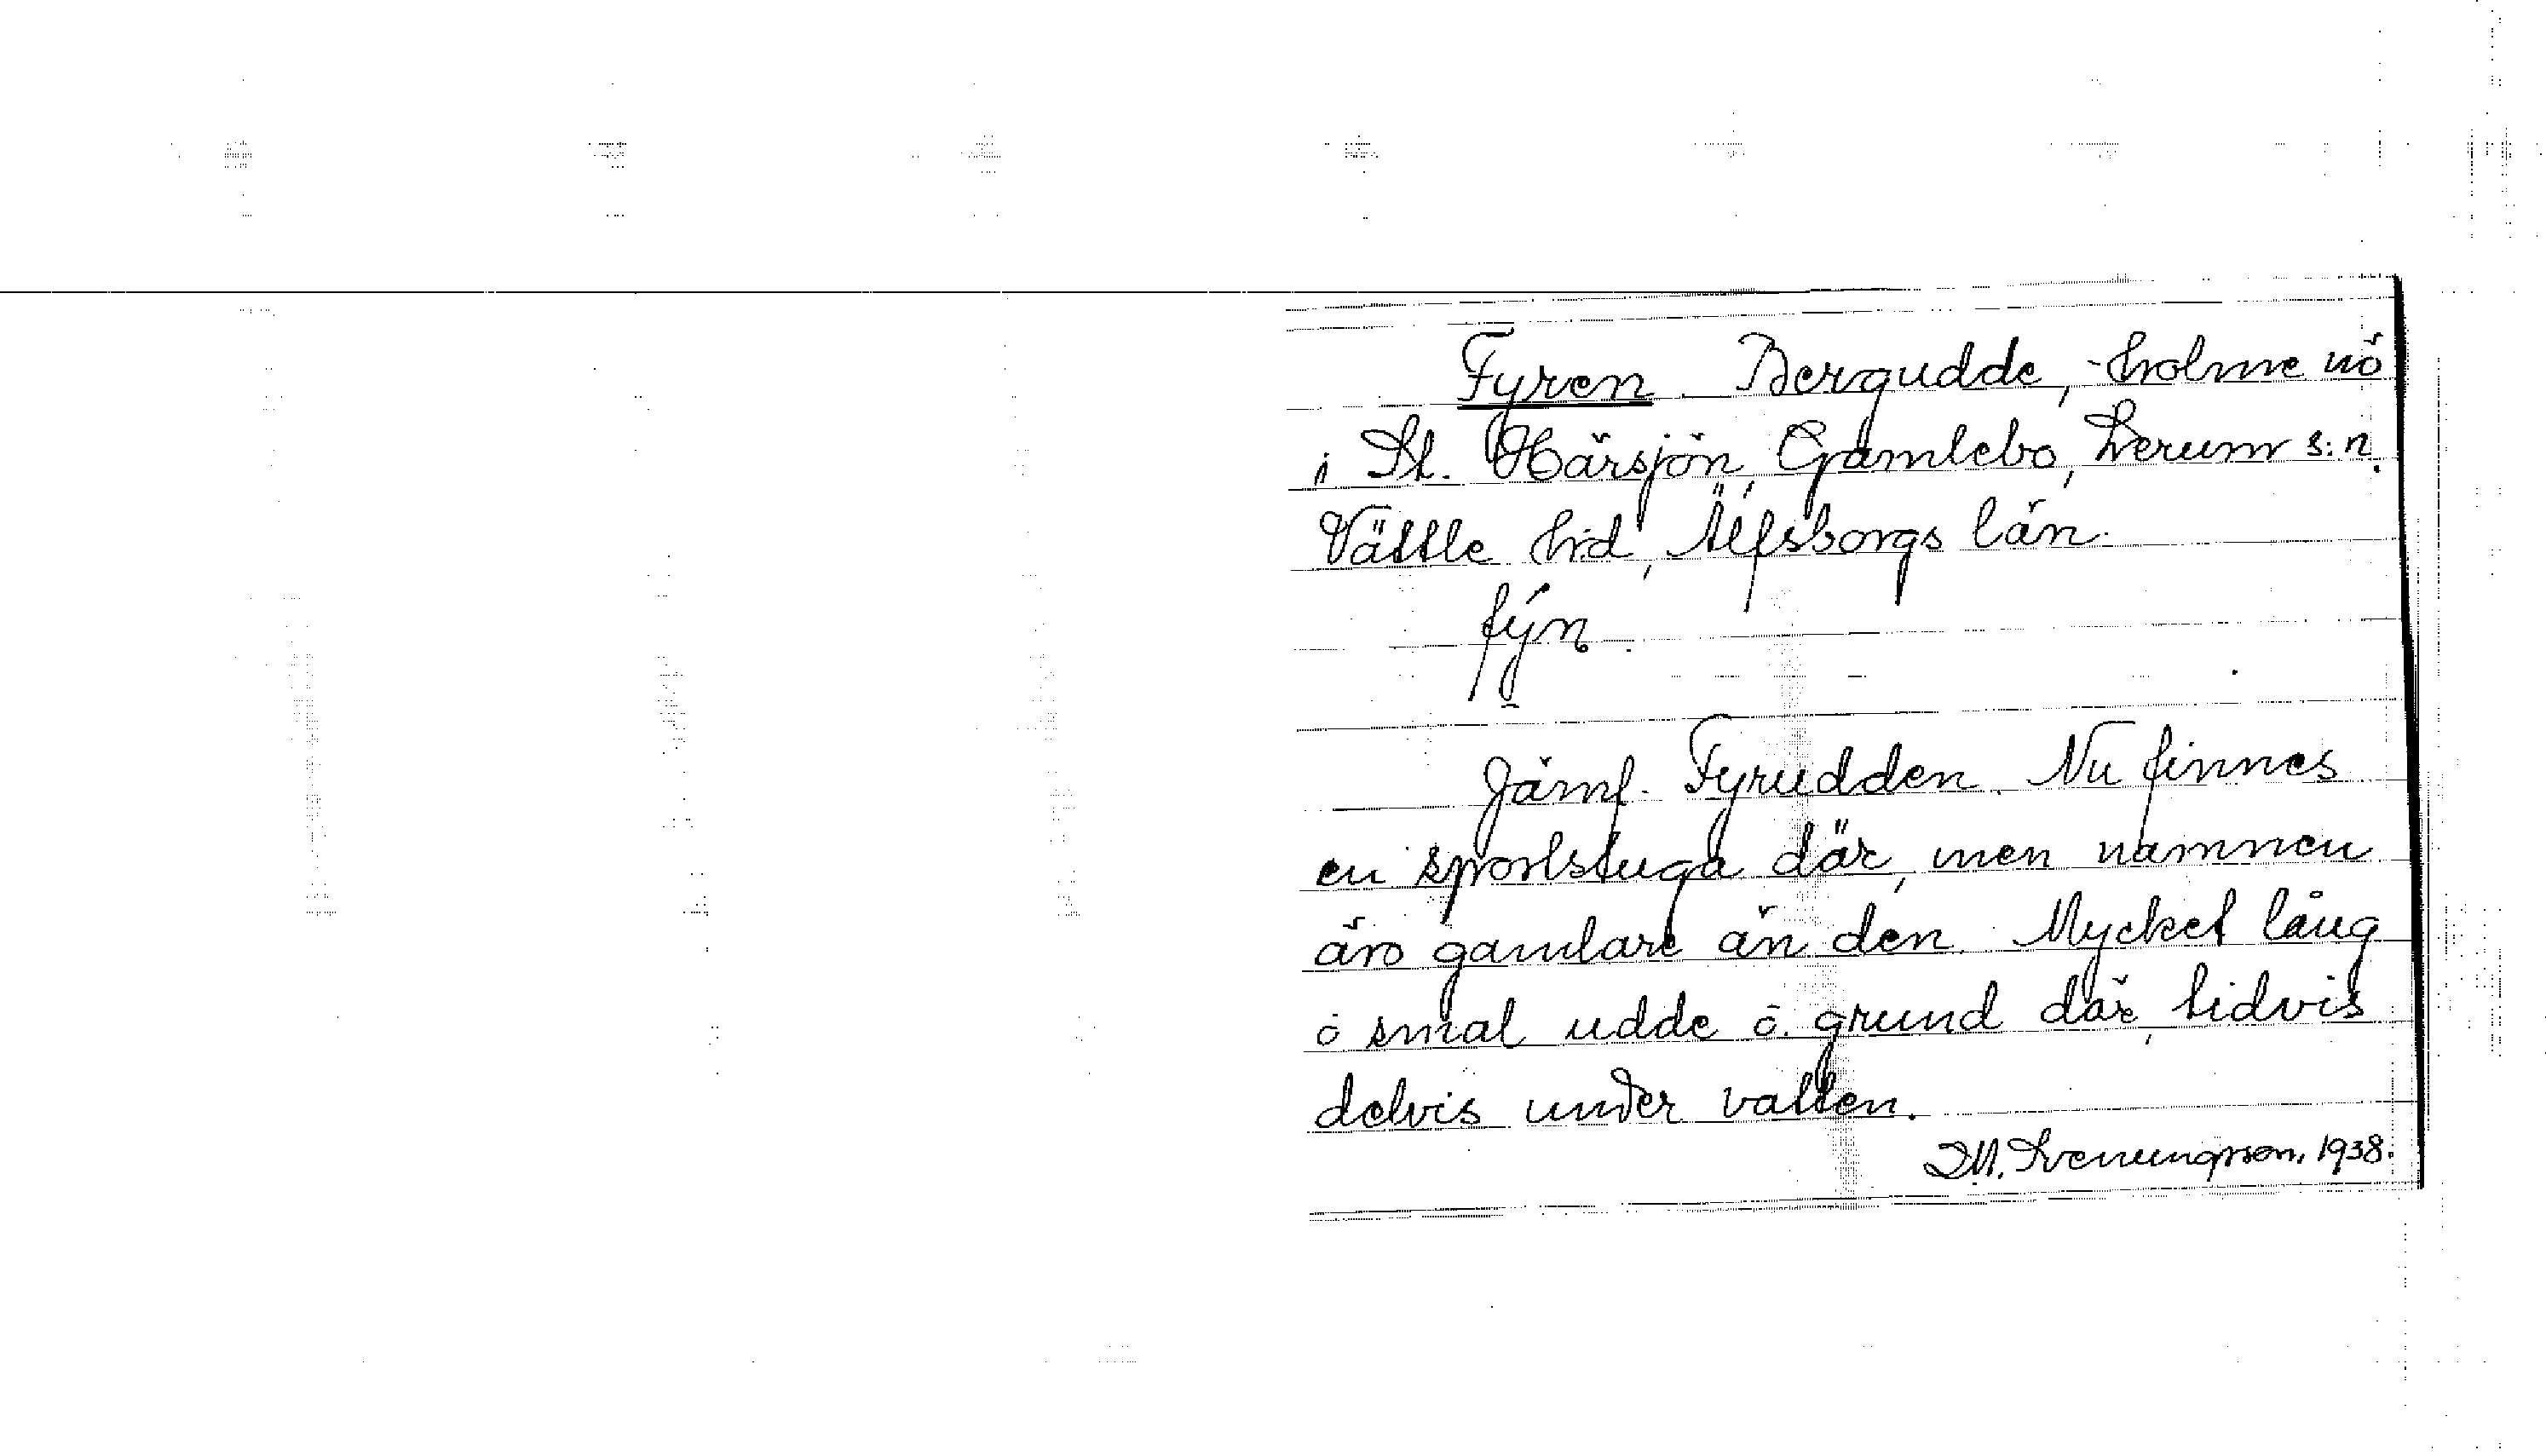 Fyren. Bergudde, -holme nö
i St. Härsjön, Gamlebo, Lerum s:n.
Vättle hd, Älfsborgs län.
fýn.
Jämf. Fyrudden. Nu finnes
en sportstuga där, men namnen
äro gamlare än den. Mycket lång
o smal udde o. grund där, tidvis
delvis under vatten.
I.M. Svenungsson, 1938.